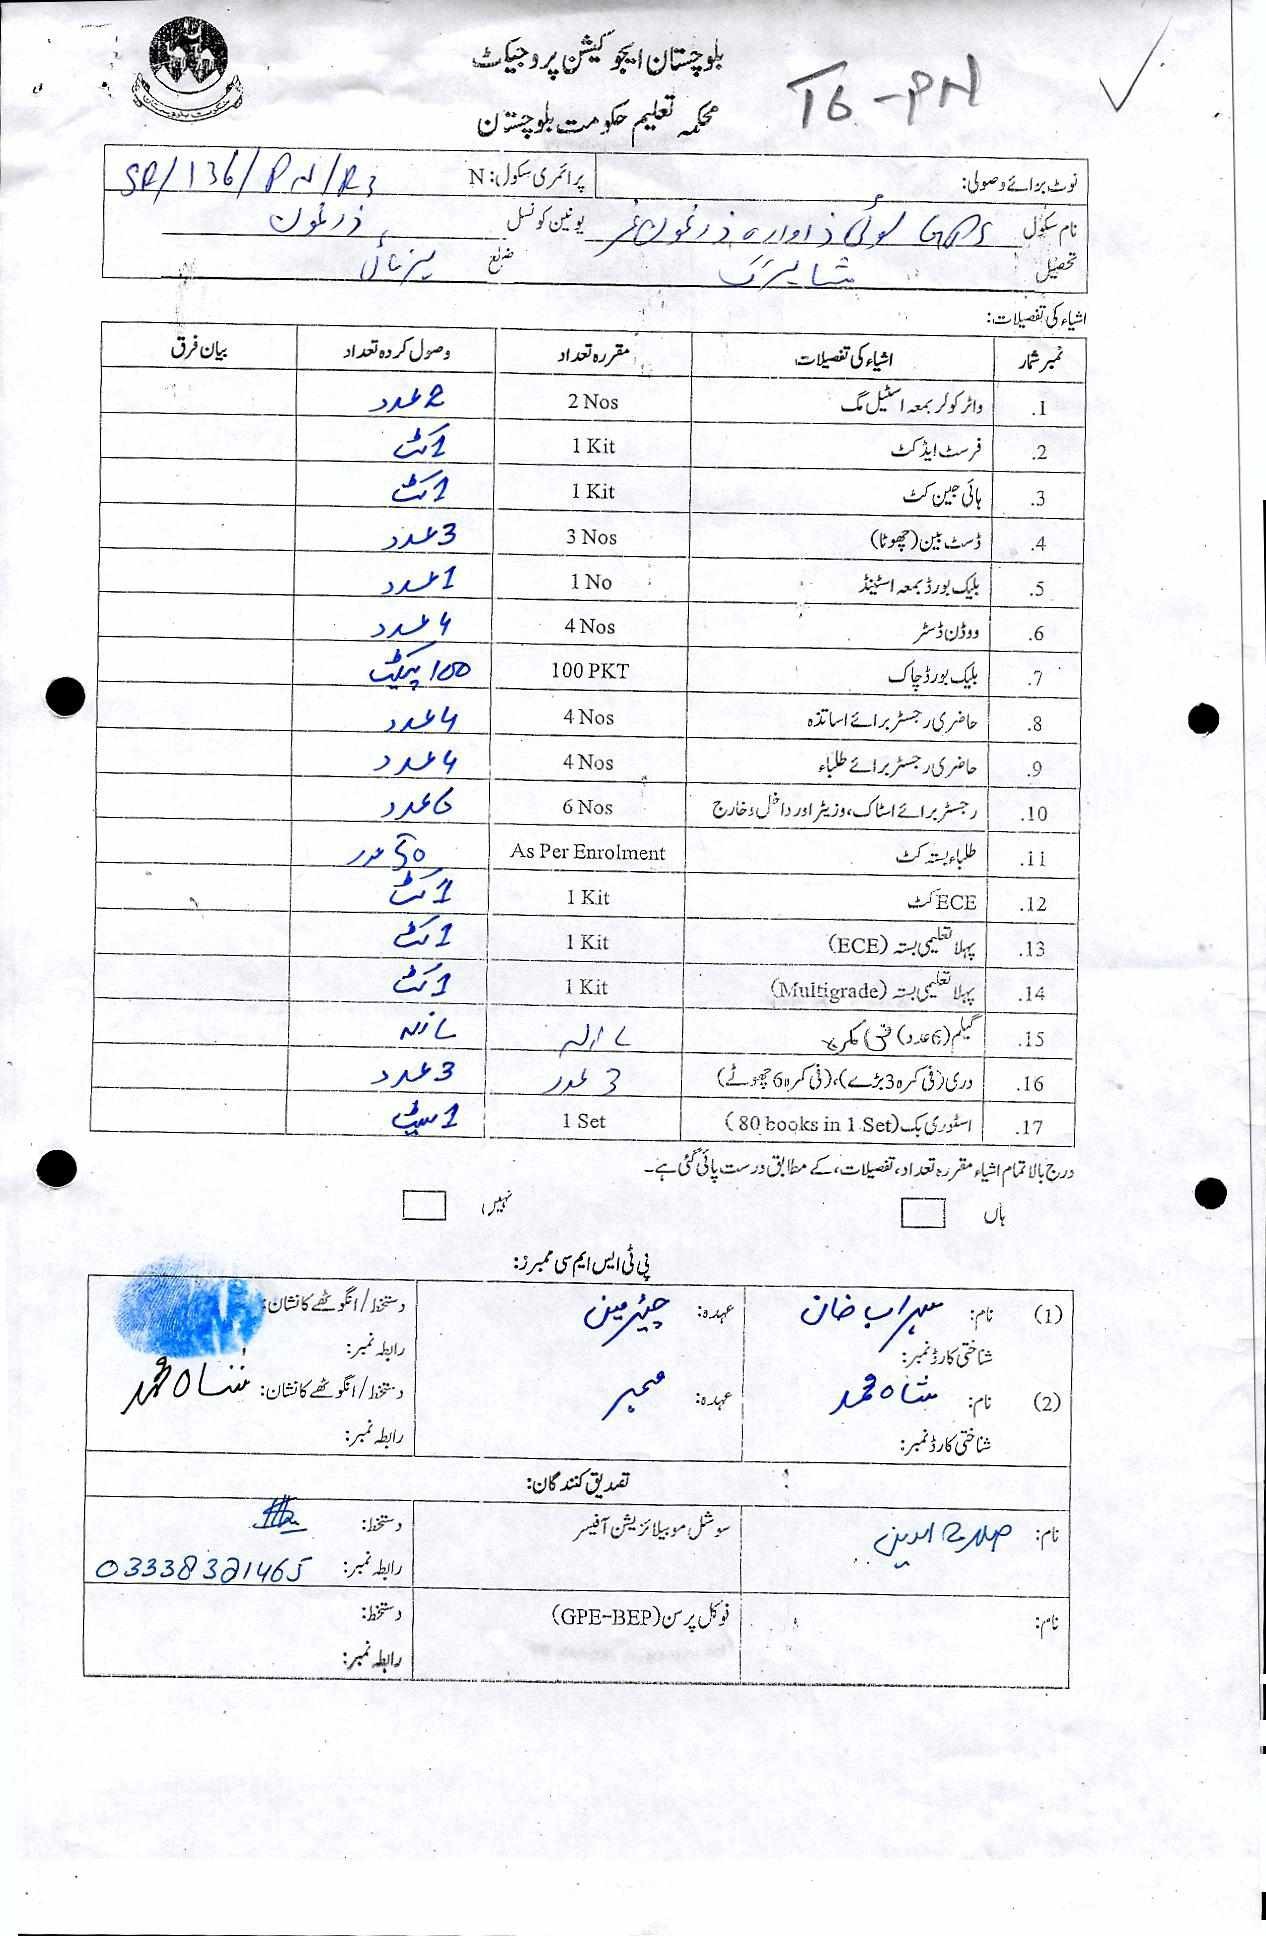 بلوچستان ایجوکیشن پروجیکٹ
T6-PN
محکمہ تعلیم حکومت بلوچستان
نوٹ برائے وصولی: پرائمری سکول: N SR/136/PN/R3
نام سکول GPS یونین کونسل زرغون
تحصیل شاہرگ ضلع
اشیاء کی تفصیلات:
نمبر شمار اشیاء کی تفصیلات مقررہ تعداد وصول کردہ تعداد بیان فرق
1. واٹر کولر بمعہ اسٹیل مگ 2 Nos 2 عدد
2. فرسٹ ایڈ کٹ 1 Kit 1 کٹ
3. ہائی جین کٹ 1 Kit 1 کٹ
4. ڈسٹ بین (چھوٹا) 3 Nos 3 عدد
5. بلیک بورڈ بمعہ اسٹینڈ 1 No 1 عدد
6. ووڈن ڈسٹر 4 Nos 4 عدد
7. بلیک بورڈ چاک 100 PKT 100 پیکٹ
8. حاضری رجسٹر برائے اساتذہ 4 Nos 4 عدد
9. حاضری رجسٹر برائے طلباء 4 Nos 4 عدد
10. رجسٹر برائے اسٹاک، وزیٹر اور داخل و خارج 6 Nos 6 عدد
11. طلباء بستہ کٹ As Per Enrolment 50 عدد
12. ECE کٹ 1 Kit 1 کٹ
13. پہلا تعلیمی بستہ (ECE) 1 Kit 1 کٹ
14. پہلا تعلیمی بستہ (Multigrade) 1 Kit 1 کٹ
15. گیلم (6 عدد) فی کمرہ
16. دری (فی کمرہ 3 بڑے)، (فی کمرہ 6 چھوٹے) 3 عدد 3 عدد
17. اسٹوری بک (80 books in 1 Set) 1 Set 1 سیٹ
درج بالا تمام اشیاء مقررہ تعداد، تفصیلات، کے مطابق درست پائی گئی ہے۔
ہاں نہیں
پی ٹی ایس ایم سی ممبرز:
(1) نام: سہراب خان عہدہ: چیئرمین دستخط/انگوٹھے کا نشان:
شناختی کارڈ نمبر: رابطہ نمبر:
(2) نام: شاہ محمد عہدہ: ممبر دستخط/انگوٹھے کا نشان: شاہ محمد
شناختی کارڈ نمبر: رابطہ نمبر:
تصدیق کنندگان:
نام: صلاح الدین سوشل موبیلائزیشن آفیسر دستخط:
رابطہ نمبر: 03338321465
نام: فوکل پرسن (GPE-BEP) دستخط:
رابطہ نمبر: